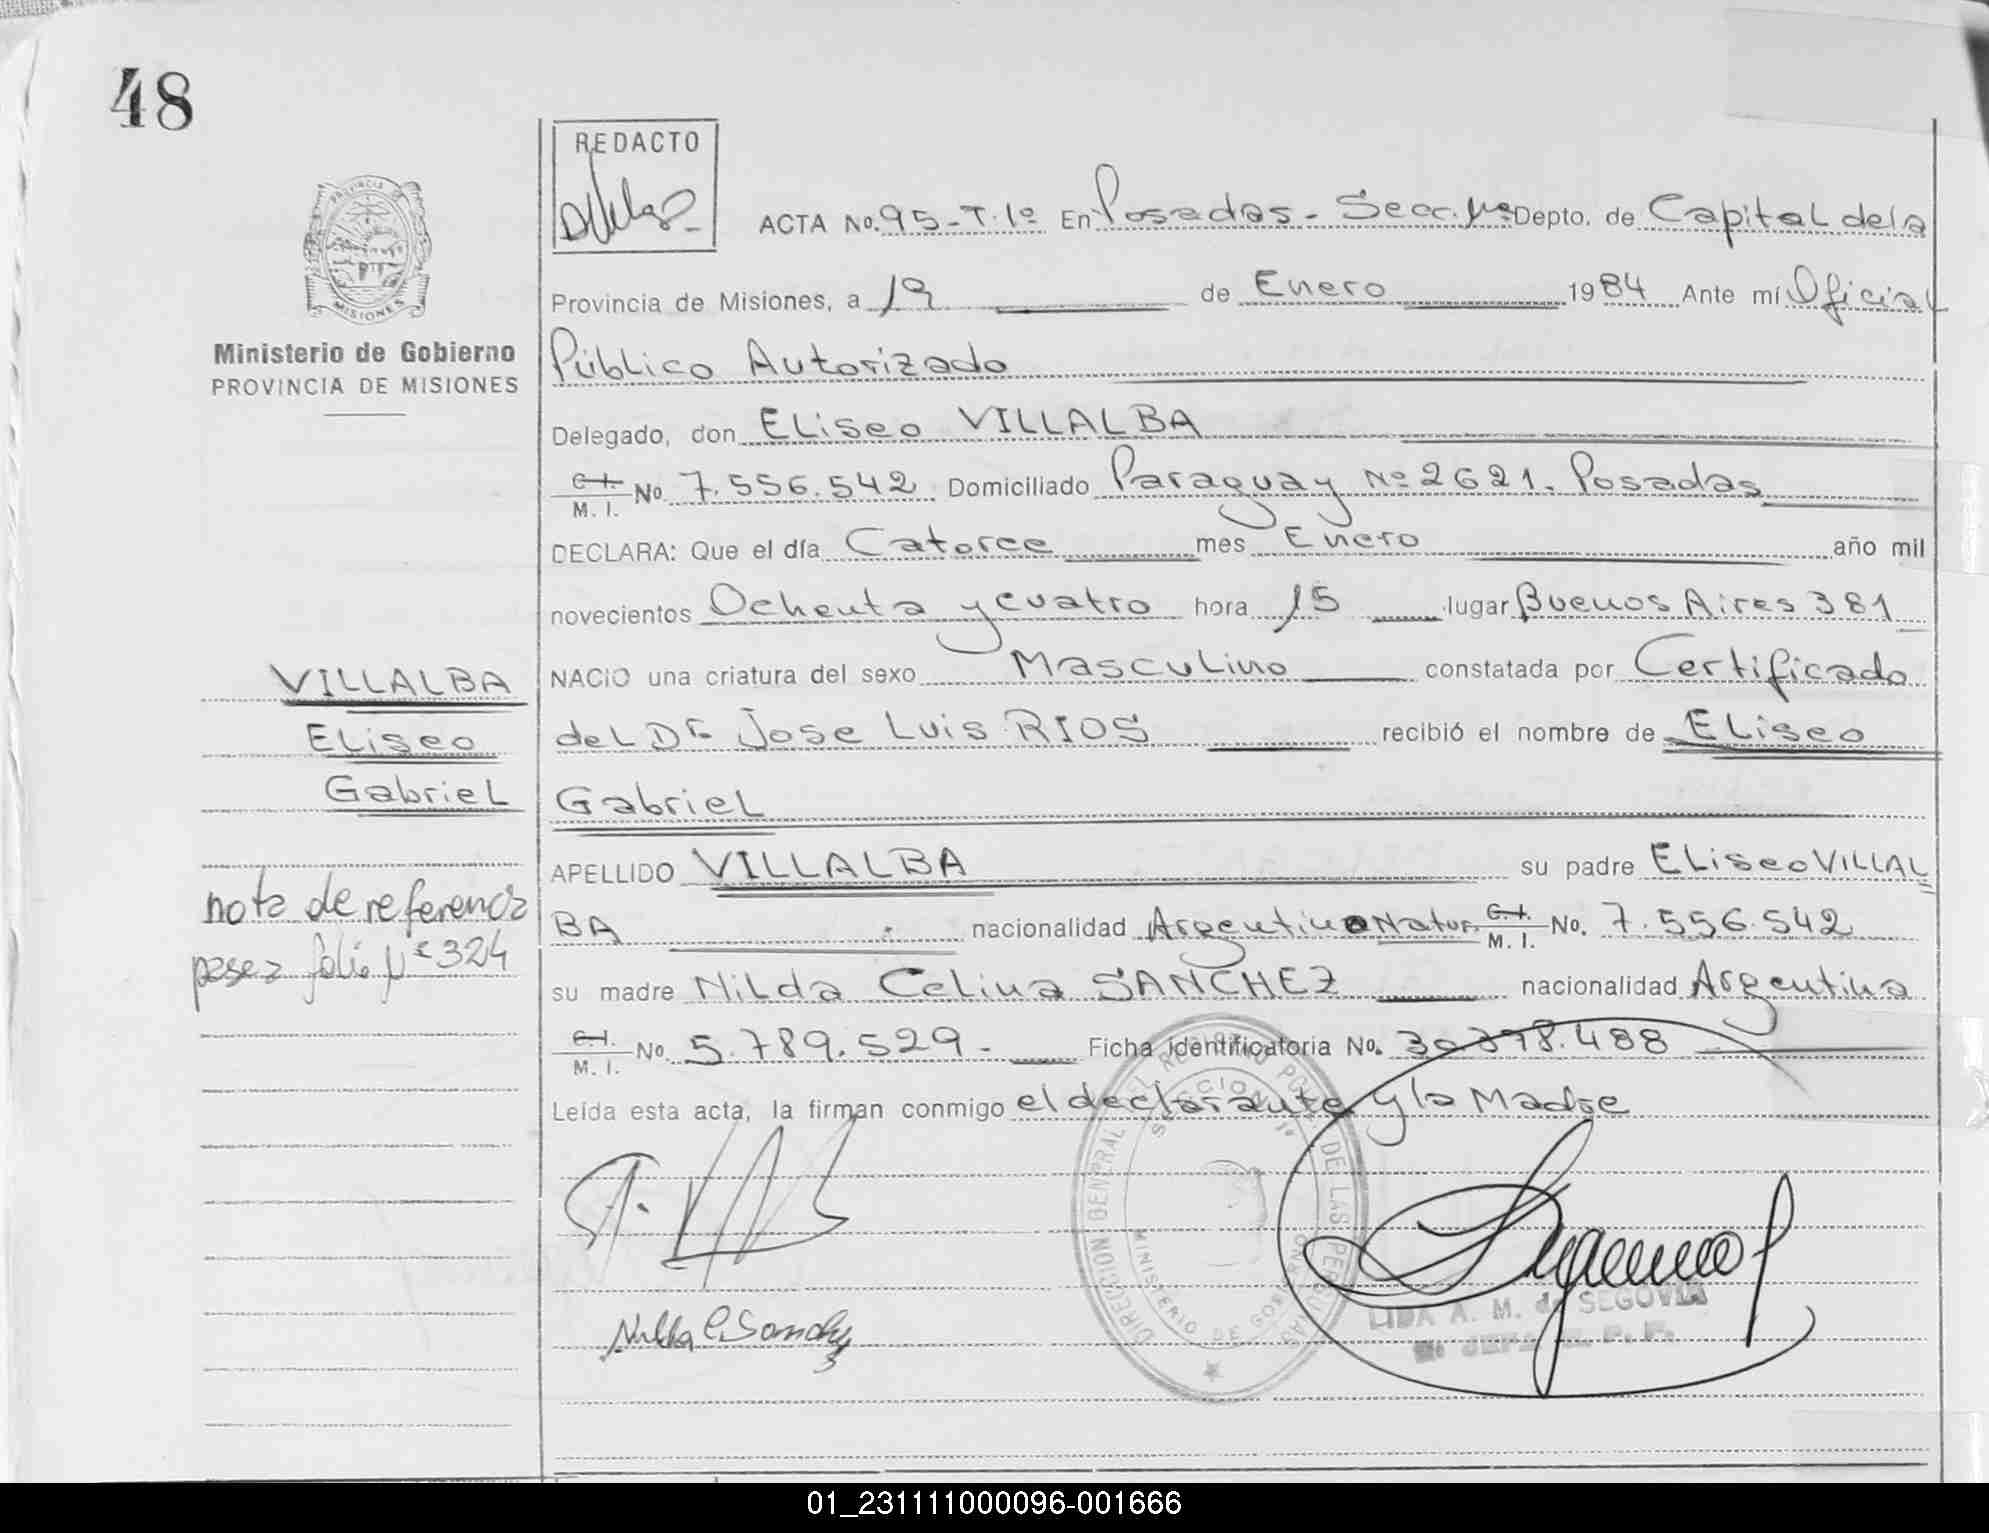 48
REDACTO
ACTA No. 95-T.1º En Posadas - Secc. 1ª Depto. de Capital de la
PROVINCIA DE MISIONES
Provincia de Misiones, a 19 de Enero 1984 Ante mí Oficial
Ministerio de Gobierno
PROVINCIA DE MISIONES
Público Autorizado
Delegado, don ELiseo VILLALBA
C.I. M.I. No 7.556.542 Domiciliado Paraguay Nº 2621. Posadas
DECLARA: Que el día Catorce mes Enero año mil
novecientos Ochenta y cuatro hora 15 lugar Buenos Aires 381
VILLALBA
NACIO una criatura del sexo Masculino constatada por Certificado
ELiseo
del Dr. Jose Luis RIOS recibió el nombre de ELiseo
Gabriel
Gabriel
APELLIDO VILLALBA su padre ELiseo VILLAL
nota de referencia
BA nacionalidad Argentino Natur. C.I. M.I. No. 7.556.542
pase a folio Nº 324
su madre Nilda Celina SANCHEZ nacionalidad Argentina
C.I. M.I. No 5.789.529.- Ficha identificatoria No. 30.378.488
Leída esta acta, la firman conmigo el declarante y la Madre
DIRECCION GENERAL DEL REGISTRO PCIAL. DE LAS PERSONAS
SECCION 1ª
MINISTERIO DE GOBIERNO
Nilda C. Sanchez
LIDA A. M. de SEGOVIA
01_231111000096-001666